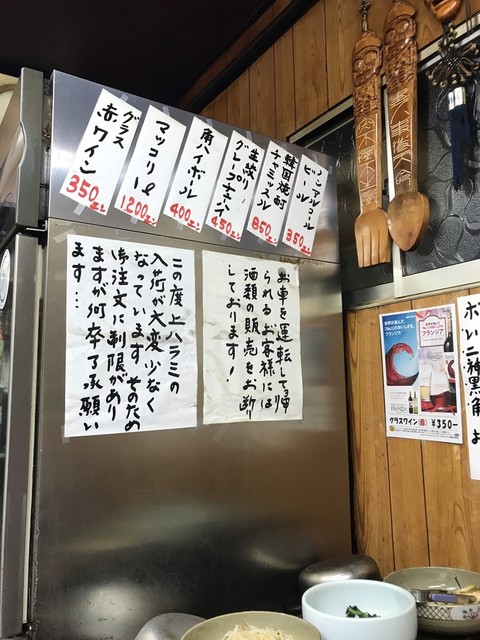 グラス
赤ワイン
350エン
マッコリ1ℓ
1,200エン
角ハイボール
400エン
生絞り
グレープサワー
450エン
韓国焼酎
チャミスル
850エン
ノンアルコール
ビール
350エン
この度上ハラミの
入荷が大変少なく
なっています。そのため
御注文に制限があり
ますが何卒了承願い
ます…
お車を運転して帰
られるお客様には
酒類の販売をお断り
しております!
フランジア
FRANZIA
グラスワイン(赤)¥350-